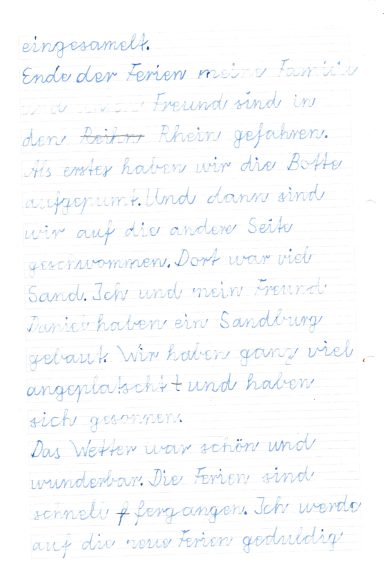 eingesamelt.
Ende der Ferien meine Familie
und Freund sind in
den Reihn Rhein gefahren.
Als erstes haben wir die Botte
aufgepumt. Und dann sind
wir auf die andere Seite
geschwommen. Dort war viel
Sand. Ich und mein Freund
Daniel haben ein Sandburg
gebaut. Wir haben ganz viel
angeplatscht und haben
sich gesonnen.
Das Wetter war schön und
wunderbar. Die Ferien sind
schnell fergangen. Ich werde
auf die neue Ferien geduldig